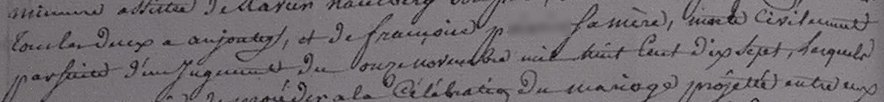 mineure assistée de
tous les deux a aujourd'hui, et de françoise p sa mère, morte civilement
par suite d'un Jugement du onze novembre mil huit Cent dix Sept, lesquels
de procéder a la Célébration du mariage projetté entre eux